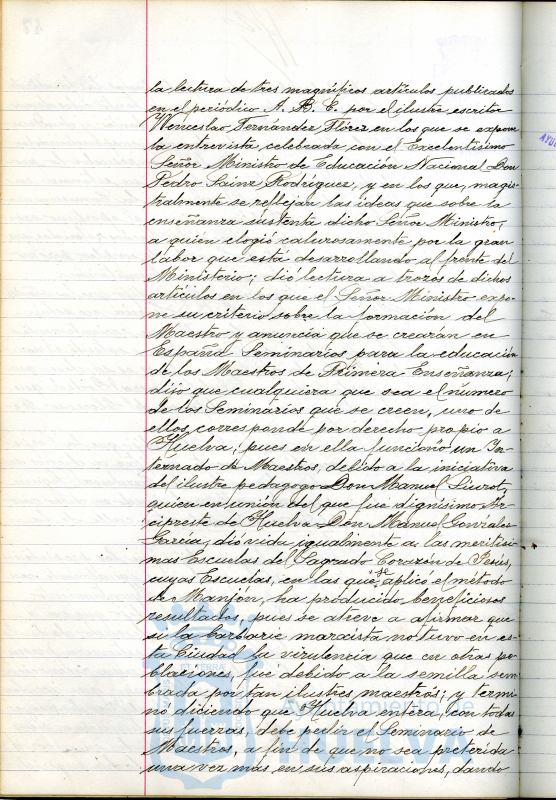 la lectura de tres magníficos artículos publicados
en el periódico A. B. C. por el ilustre escritor
Wenceslao Fernández Flórez en los que se expone
la entrevista, celebrada con el Excelentísimo
Señor Ministro de Educación Nacional Don
Pedro Sáinz Rodríguez, y en los que, magis-
tralmente se reflejan las ideas que sobre la
enseñanza sustenta dicho Señor Ministro,
a quién elogió calurosamente por la gran
labor que está desarrollando al frente del
Ministerio; dió lectura a trozos de dichos
artículos en los que el Señor Ministro expo-
ne su criterio sobre la formación del
Maestro y anuncia que se crearán en
España Seminarios para la educación
de los Maestros de Primera Enseñanza;
dijo que cualquiera que sea el número
de los Seminarios que se creen, uno de
ellos, corresponde por derecho propio a
Huelva, pues en ella funcionó un In-
ternado de Maestros, debido a la iniciativa
del ilustre pedagogo Don Manuel Siurot,
quien en unión del que fué dignísimo Ar-
cipreste de Huelva Don Manuel González
García, dió vida igualmente a las meritísi-
mas Escuelas del Sagrado Corazón de Jesús,
cuyas Escuelas, en las que se aplicó el método
de Manjón, ha producido beneficiosos
resultados, pues se atreve a afirmar que
si la barbarie marxista no tuvo en es-
ta Ciudad la virulencia que en otras po-
blaciones, fué debido a la semilla sem-
brada por tan ilustres maestros; y termi-
nó diciendo que Huelva entera, con todas
sus fuerzas, debe pedir el Seminario de
Maestros, a fin de que no sea preterida
una vez mas en sus aspiraciones, dando
Ayuntamiento de
HUELVA